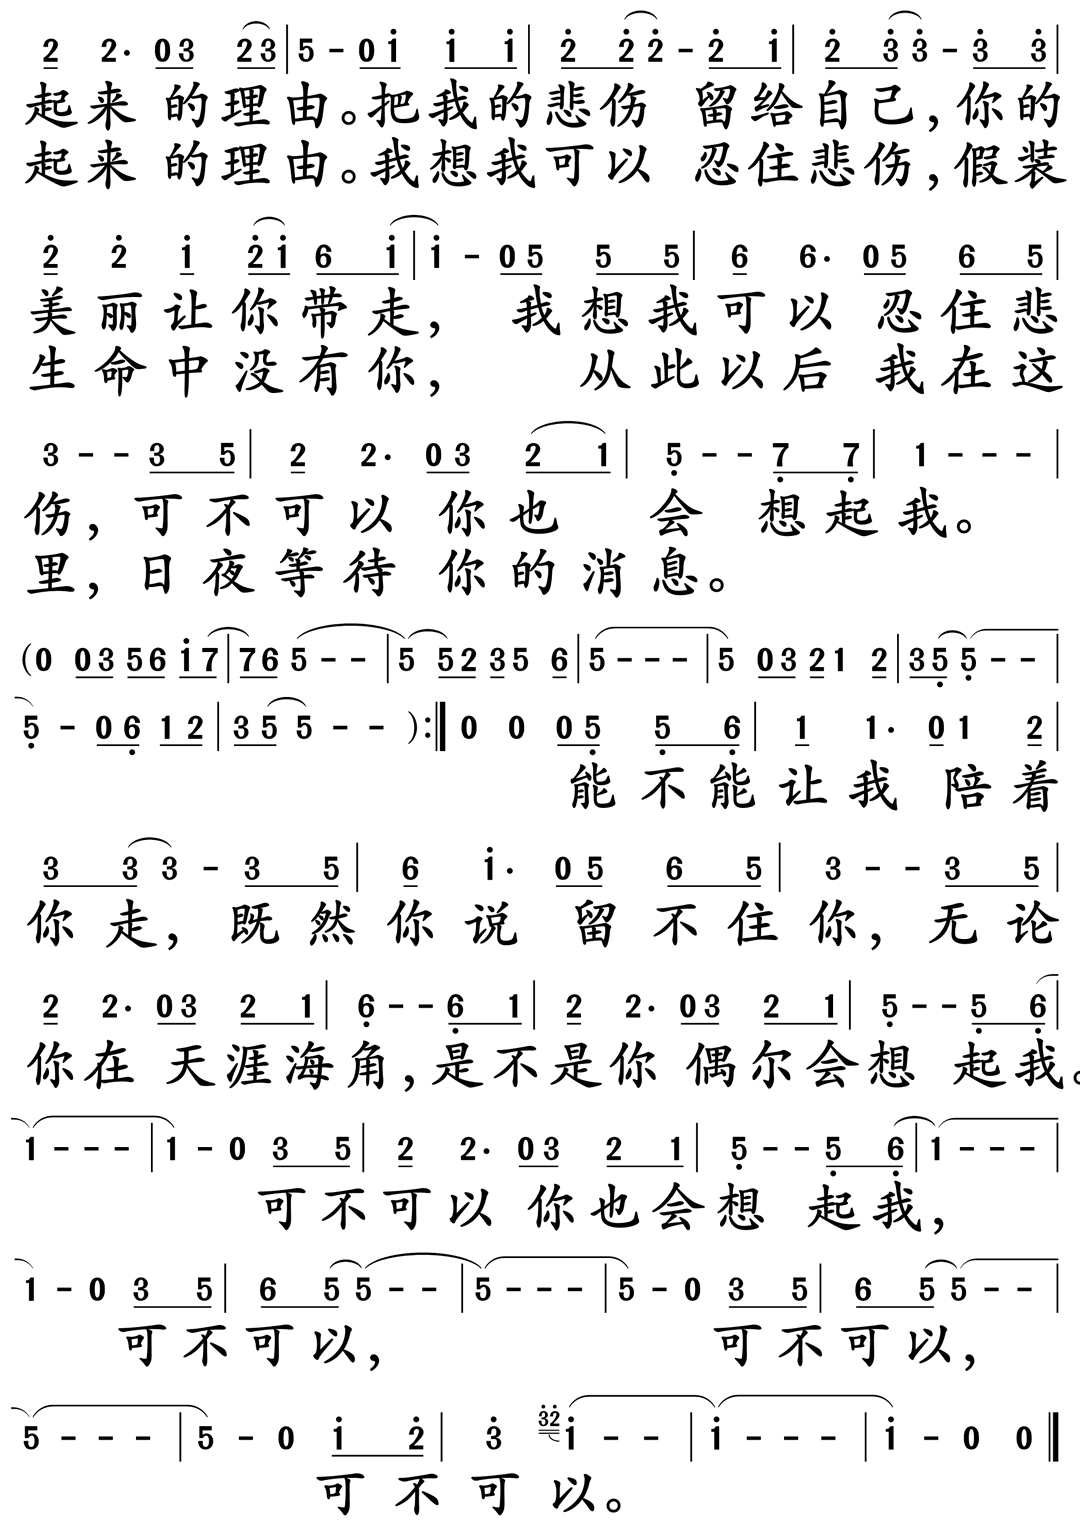 2 2· 03 23 | 5 - 0i i i | 2 22 - 2 i | 2 33 - 3 3 |
起来 的理由。把我的悲伤 留给自己,你的
起来 的理由。我想我可以 忍住悲伤,假装
2 2 i 2i 6 i | i - 05 5 5 | 6 6· 05 6 5 |
美丽让你带走, 我想我可以 忍住悲
生命中没有你, 从此以后 我在这
3 - - 3 5 | 2 2· 03 2 1 | 5 - - 7 7 | 1 - - - |
伤,可不可以 你也 会 想起我。
里,日夜等待 你的消息。
(0 03 56 i7 | 76 5 - - | 5 52 35 6 | 5 - - - | 5 03 21 2 | 35 5 - - |
5 - 06 12 | 35 5 - - ):‖ 0 0 05 5 6 | 1 1· 01 2 |
能不能让我 陪着
3 33 - 3 5 | 6 i· 05 6 5 | 3 - - 3 5 |
你走,既然你说 留不住你,无论
2 2· 03 2 1 | 6 - - 6 1 | 2 2· 03 2 1 | 5 - - 5 6 |
你在 天涯海角,是不是你 偶尔会想 起我。
1 - - - | 1 - 0 3 5 | 2 2· 03 2 1 | 5 - - 5 6 | 1 - - - |
可不可以 你也会想 起我,
1 - 0 3 5 | 6 55 - - | 5 - - - | 5 - 0 3 5 | 6 55 - - |
可不可以, 可不可以,
5 - - - | 5 - 0 i 2 | 3 32i - - | i - - - | i - 0 0 ‖
可不可以。